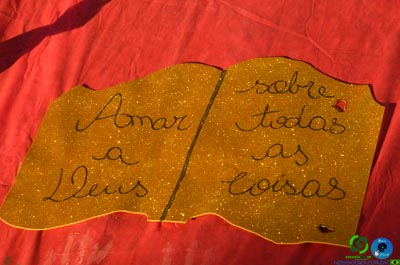 Amar
a
Deus
sobre
todas
as
coisas